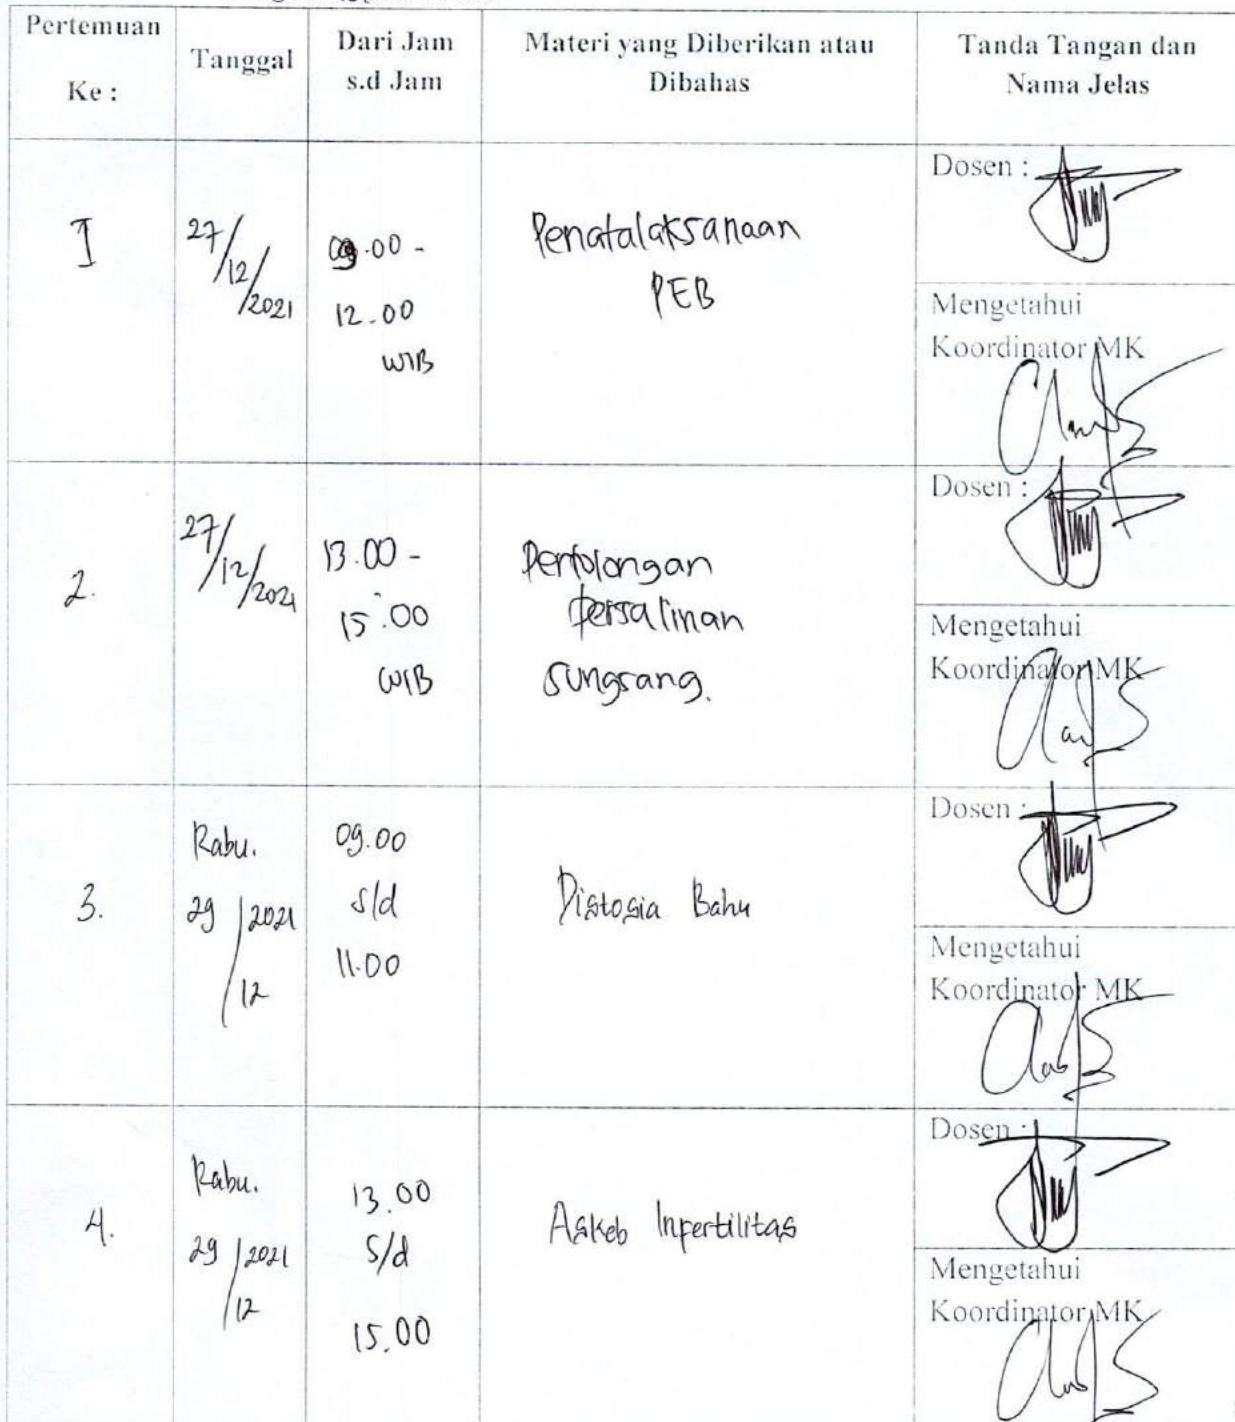 Pertemuan
Ke :
Tanggal
Dari Jam
s.d Jam
Materi yang Diberikan atau
Dibahas
Tanda Tangan dan
Nama Jelas
I
27/12/2021
09.00 -
12.00
WIB
Penatalaksanaan
PEB
Dosen :
Mengetahui
Koordinator MK
2.
27/12/2021
13.00 -
15.00
WIB
Pertolongan
persalinan
sungsang.
Dosen :
Mengetahui
Koordinator MK
3.
Rabu.
29/2021
/12
09.00
s/d
11.00
Distosia Bahu
Dosen :
Mengetahui
Koordinator MK
4.
Rabu.
29/2021
/12
13.00
s/d
15.00
Askeb Infertilitas
Dosen :
Mengetahui
Koordinator MK